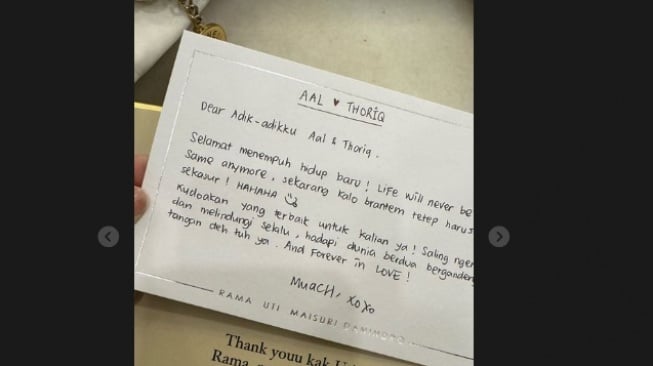 AAL ♥ THORIQ
Dear Adik-adikku Aal & Thoriq.
Selamat menempuh hidup baru! LIFE will never be
same anymore, sekarang kalo brantem tetep harus
sekasur! HAHAHA
kudoakan yang terbaik untuk kalian ya! Saling
dan melindungi selalu, hadapi dunia berdua
tangan deh tuh ya. And Forever in LOVE!
MUACH, XOXO
RAMA UTI MAISURI
Thank youu kak
Rama,